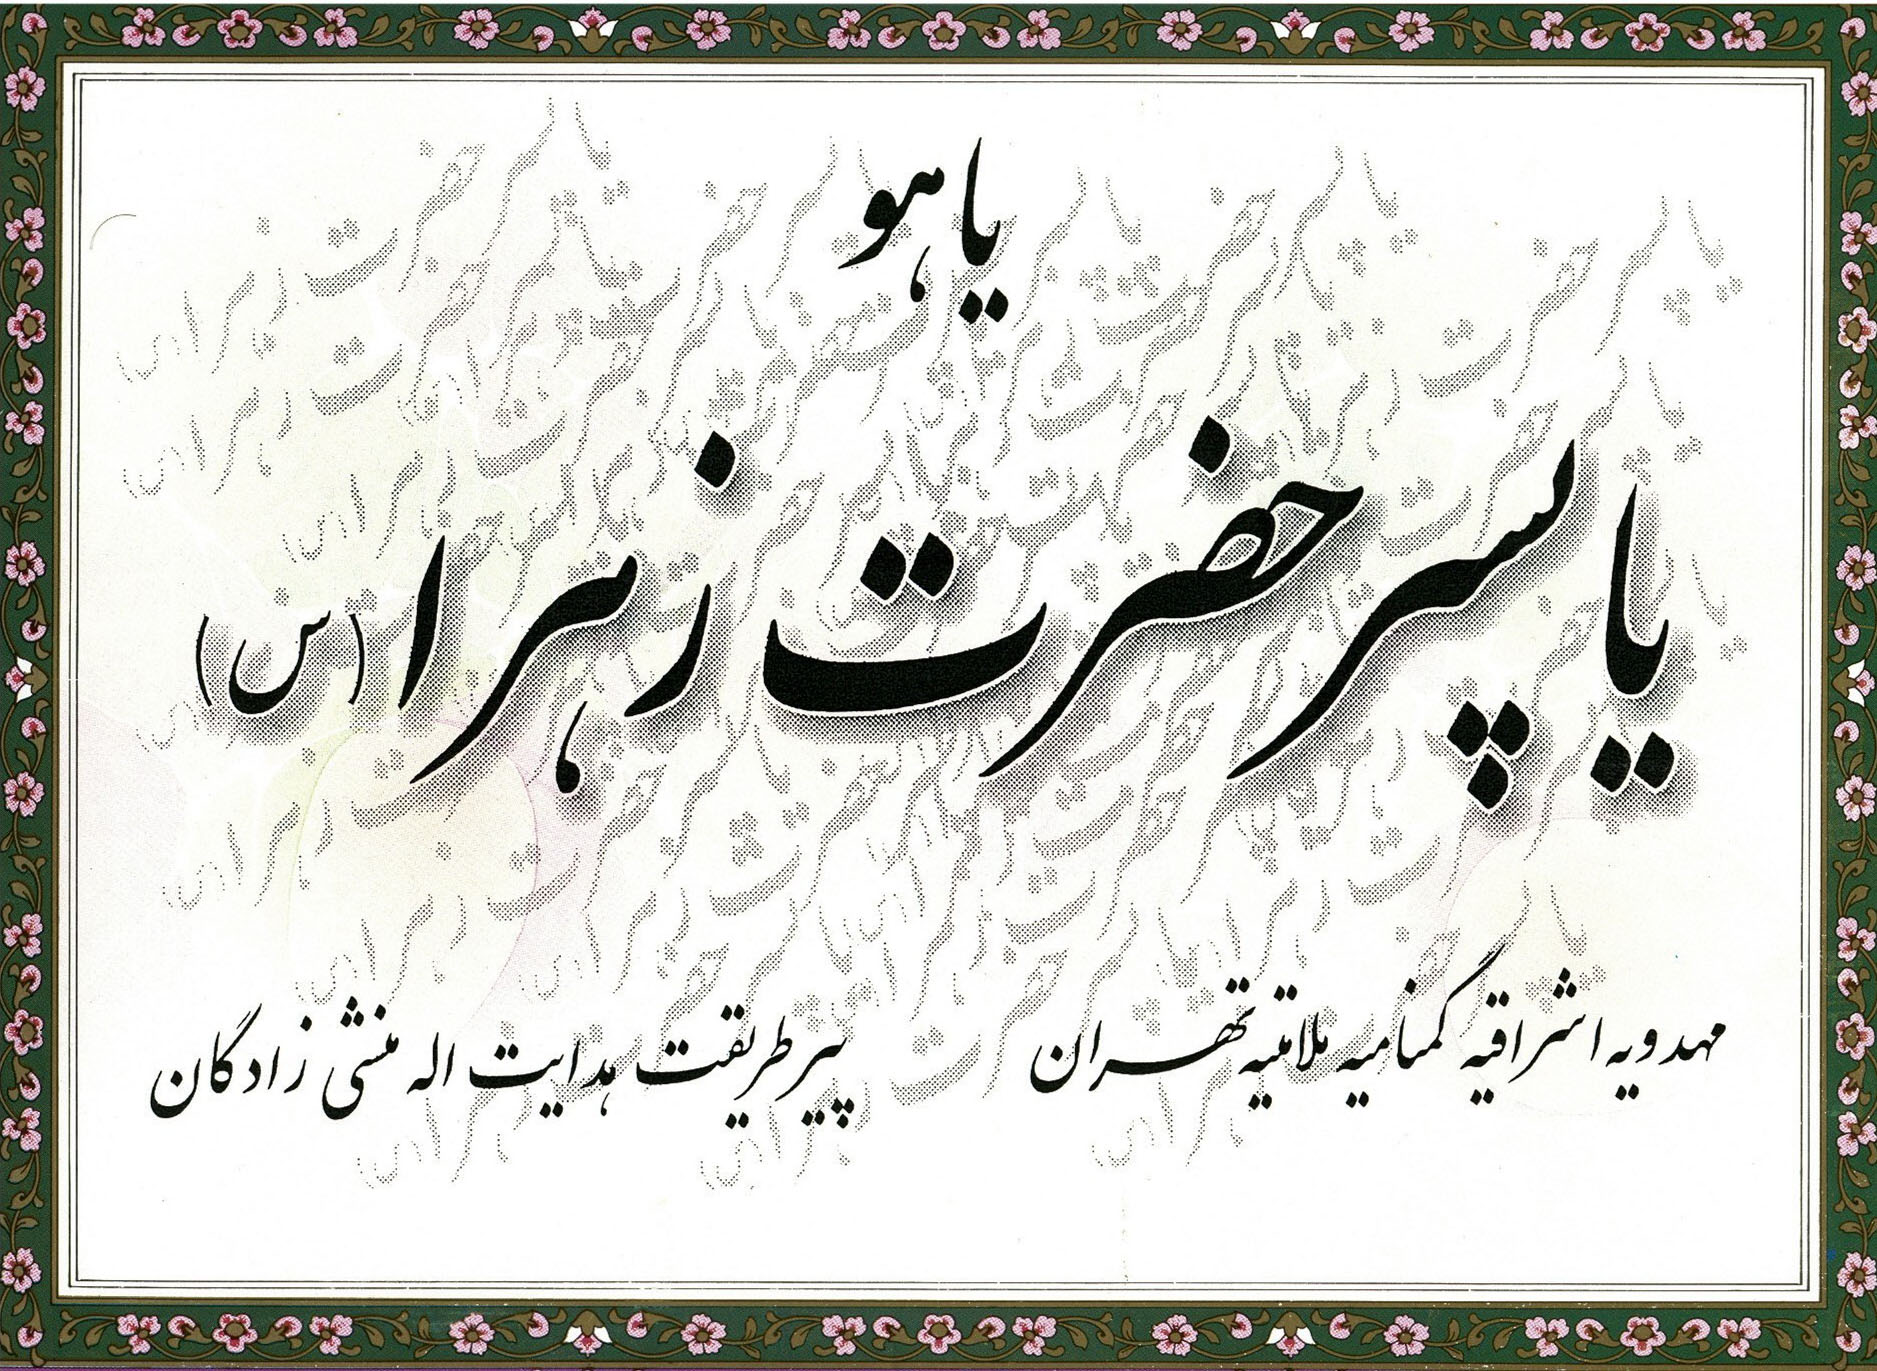 یا هو
یا پسر حضرت زهرا (س)
مهدویه اشراقیه گمنامیه ملامتیه تهران
پیر طریقت هدایت اله منشی زادگان